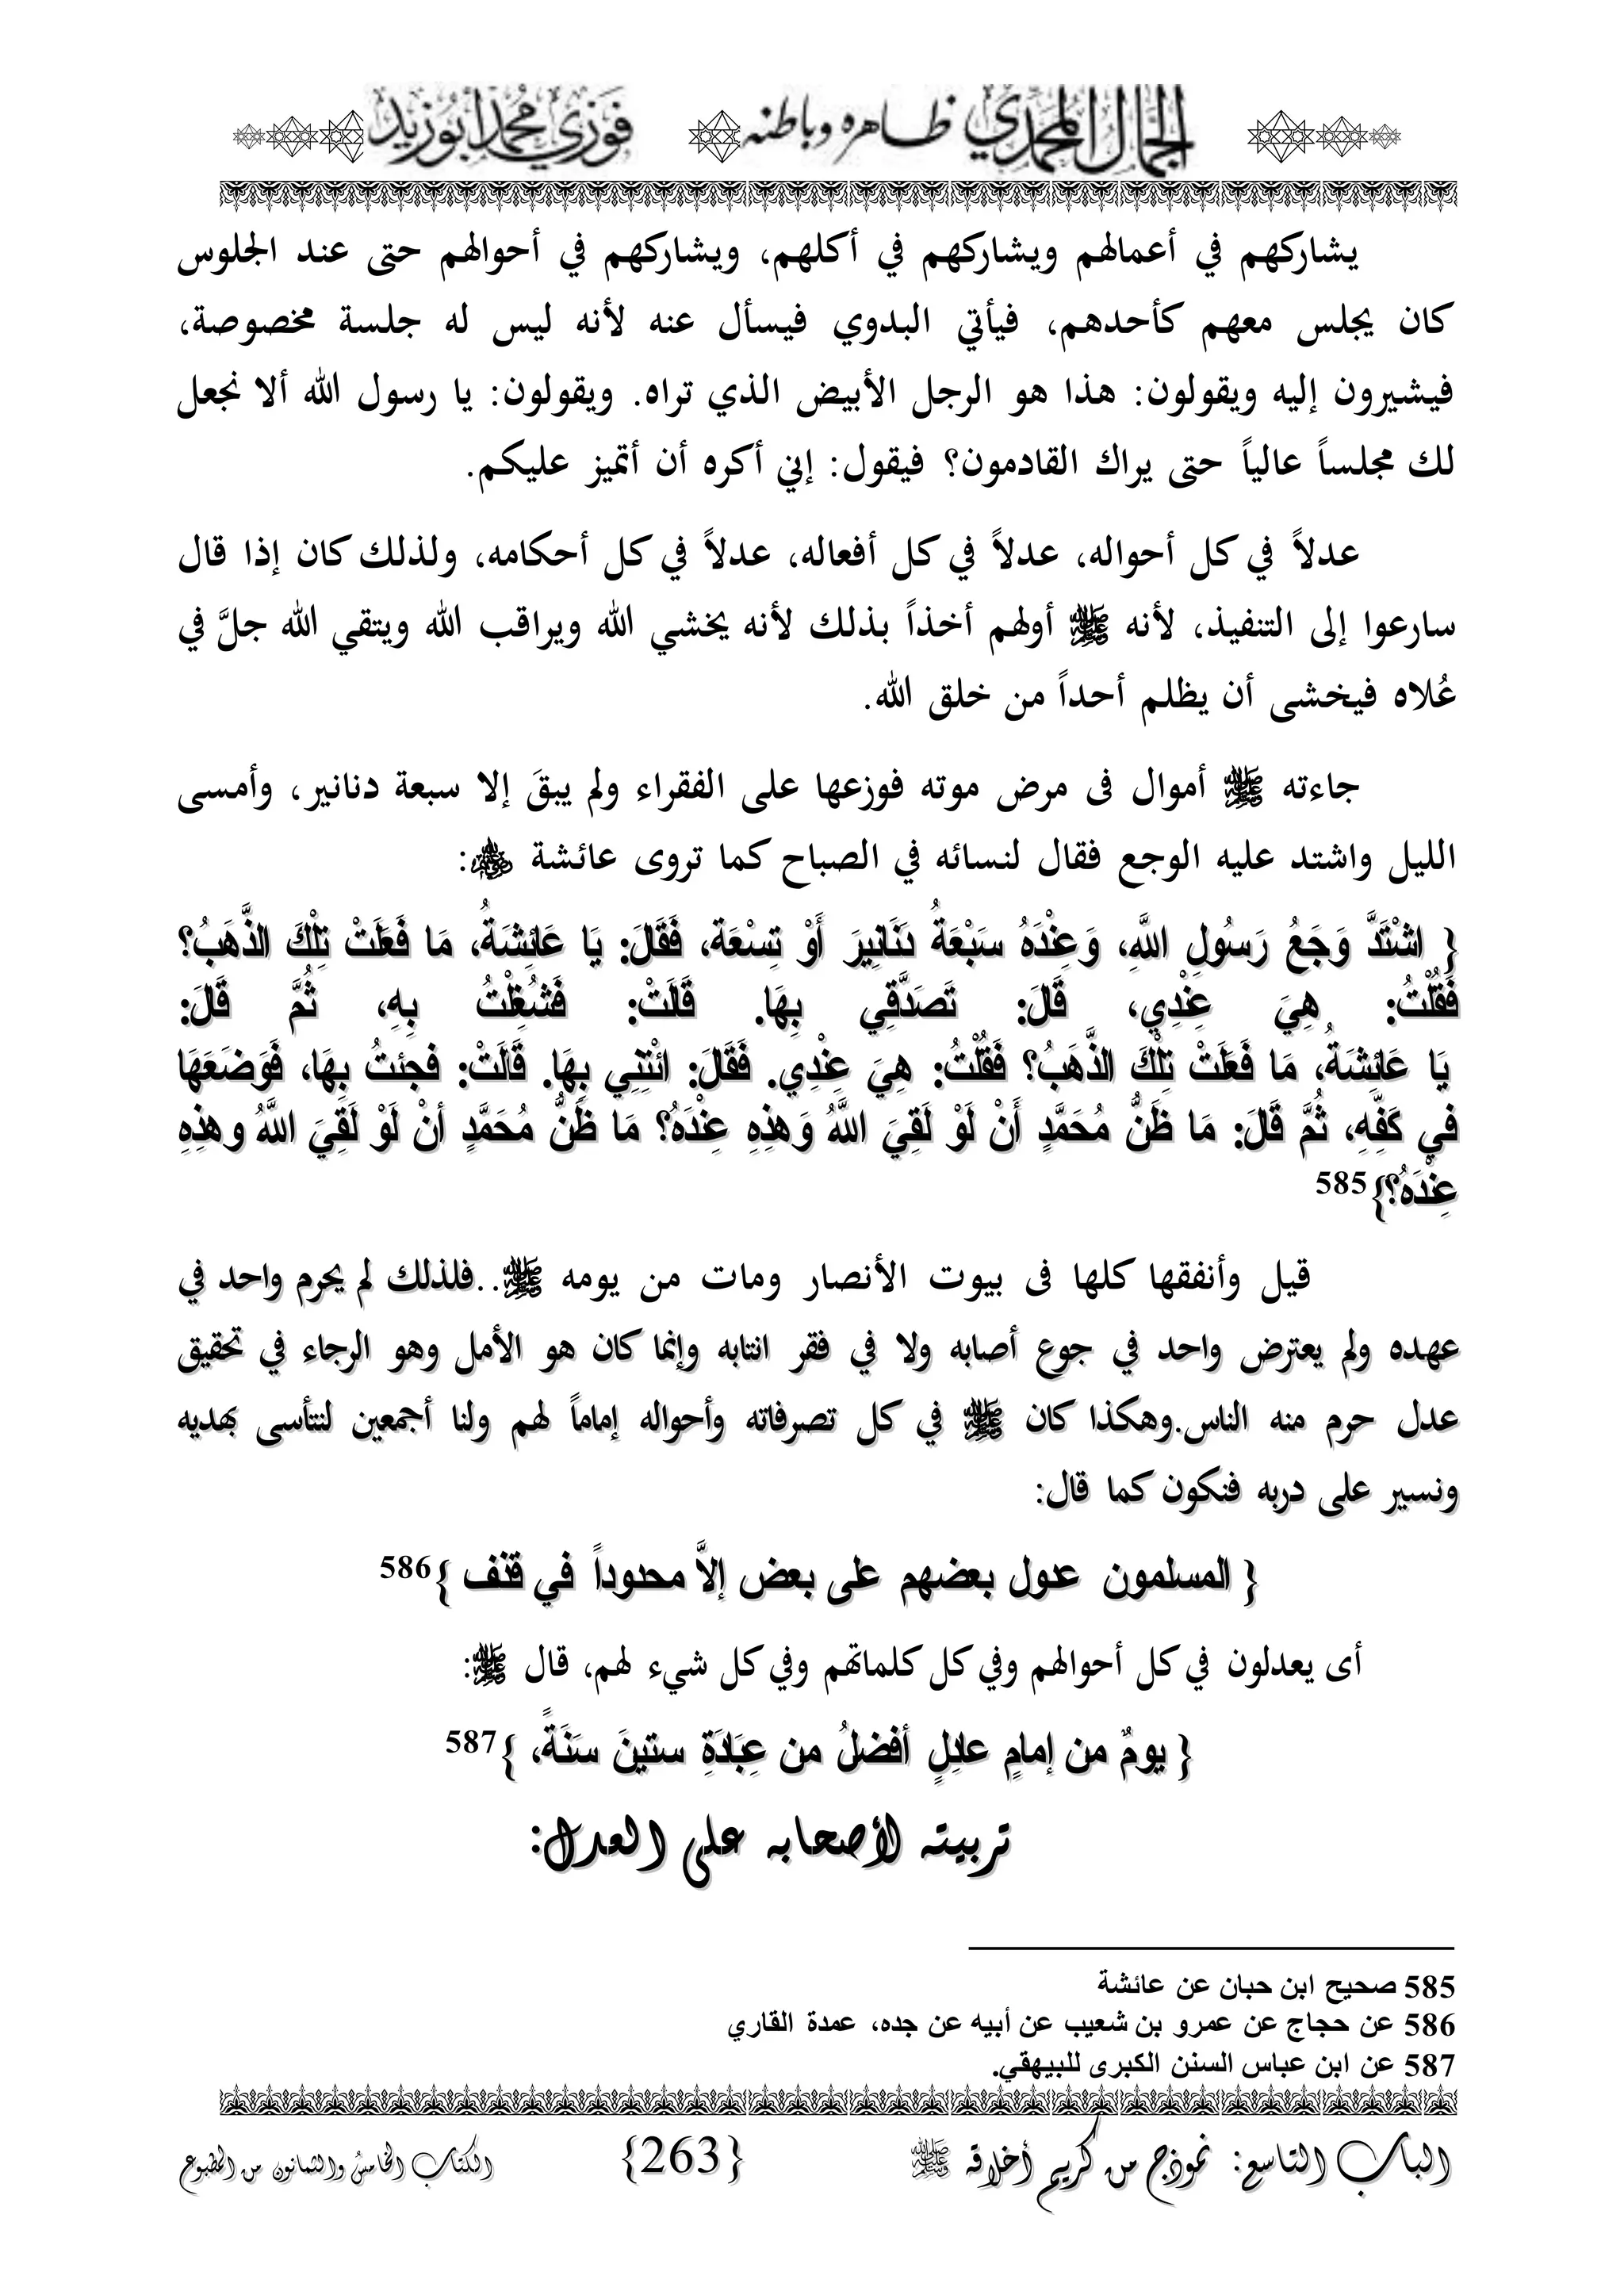 الجمال المحمدي ظاهره وباطنه فوزي محمد أبوزيد
يشاركهم في أعمالهم ويشاركهم في أكلهم، ويشاركهم في أحوالهم حتى عند الجلوس
كان يجلس معهم كأحدهم، فيأتي البدوي فيسأل عنه لأنه ليس له جلسة مخصوصة،
فيشيرون إليه ويقولون: هذا هو الرجل الأبيض الذي تراه. ويقولون: يا رسول الله ألا نجعل
لك مجلساً عالياً حتى يراك القادمون؟ فيقول: إني أكره أن أتميز عليكم.
عدلاً في كل أحواله، عدلاً في كل أفعاله، عدلاً في كل أحكامه، ولذلك كان إذا قال
سارعوا إلى التنفيذ، لأنه ﷺ أولهم أخذاً بذلك لأنه يخشي الله ويراقب الله ويتقي الله جلَّ في
عُلاه فيخشى أن يظلم أحداً من خلق الله.
جاءته ﷺ أموال فى مرض موته فوزعها على الفقراء ولم يبقَ إلا سبعة دنانير، وأمسى
الليل واشتد عليه الوجع فقال لنسائه في الصباح كما تروى عائشة :
{ اشْتَدَّ وَجَعُ رَسُولِ اللَّهِ، وَعِنْدَهُ سَبْعَةُ دَنَانِيرَ أَوْ تِسْعَة، فَقَالَ: يَا عَائِشَةُ، مَا فَعَلَتْ تِلْكَ الذَّهَبُ؟
فَقُلْتُ: هِيَ عِنْدِي، قَالَ: تَصَدَّقِي بِهَا. قَالَتْ: فَشُغِلْتُ بِهِ، ثُمَّ قَالَ:
يَا عَائِشَةُ، مَا فَعَلَتْ تِلْكَ الذَّهَبُ؟ فَقُلْتُ: هِيَ عِنْدِي. فَقَالَ: ائْتِنِي بِهَا. قَالَتْ: فجئتُ بِهَا، فَوَضَعَهَا
في كَفِّهِ، ثُمَّ قَالَ: مَا ظَنُّ مُحَمَّدٍ أَنْ لَوْ لَقِيَ اللَّهُ وَهذِهِ عِنْدَهُ؟ مَا ظَنُّ مُحَمَّدٍ أنْ لَوْ لَقِيَ اللَّهُ وهذِهِ
عِنْدَهُ؟}585
قيل وأنفقها كلها فى بيوت الأنصار ومات من يومه ﷺ ..فلذلك لم يحرم واحد في
عهده ولم يعترض واحد في جوع أصابه ولا في فقر انتابه وإنما كان هو الأمل وهو الرجاء في تحقيق
عدل حرم منه الناس.وهكذا كان ﷺ في كل تصرفاته وأحواله إماماً لهم ولنا أجمعين لنتأسى بهديه
ونسير على دربه فنكون كما قال:
{ المسلمون عدول بعضهم على بعض إلاَّ محدوداً في قذف }586
أى يعدلون في كل أحوالهم وفي كل كلماتهم وفي كل شيء لهم، قال ﷺ:
{ يومٌ من إمامٍ عادِلٍ أفضلُ من عِبَادَةِ ستينَ سَنَةً، }587
تربيته لأصحابه على العدل:
585 صحيح ابن حبان عن عائشة
586 عن حجاج عن عمرو بن شعيب عن أبيه عن جده، عمدة القاري
587 عن ابن عباس السنن الكبرى للبيهقي.
الباب التاسع: نموذج من كريم أخلاقه ﷺ {263} الكتاب الخامس والثمانون من المطبوع